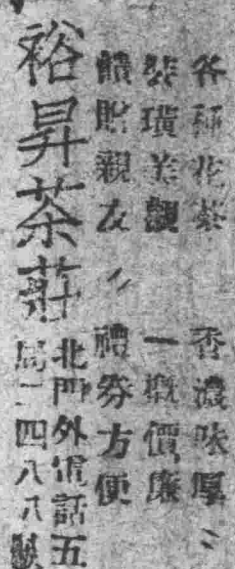 各種花茶　香濃味厚
裝璜美觀　一概價廉
餽貽親友　禮券方便
裕昇茶莊
北門外電話五
局二四八八號